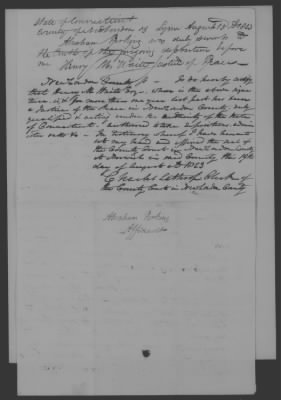 State of Connecticut
County of New London ss Lyme August 18 1853
Abraham made oath to
the truth of the foregoing deposition before
me Henry M. Waite Justice of Peace
New London County ss I do hereby certify
that Henry M. Waite Esq. whose
is & for more than one year last past has been
a Justice of the Peace in New London County duly
qualified & acting under the authority of the State
of Connecticut & authorized to take depositions admin
ister oaths &c In testimony whereof I have hereunto
set my hand and affixed the seal of
the County Court in New London County
at Norwich in said County, this 19th
day of August AD. 1853
Charles Lathrop Clerk of
the County Court in New London County
Abraham
Affidavit